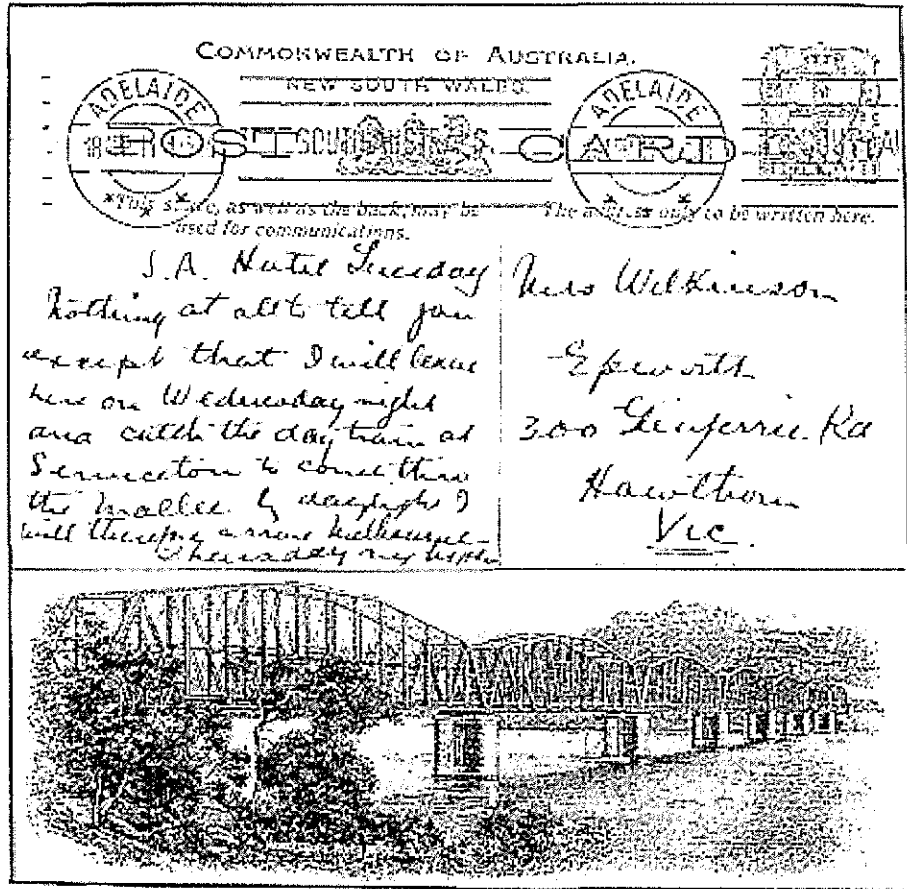 COMMONWEALTH OF AUSTRALIA.
NEW SOUTH WALES.
ADELAIDE
ADELAIDE
POST CARD
SOUTH AUSTRALIA
*This space, as well as the back, may be
used for communications.
The address only to be written here.
S.A. Hotel Tuesday
Nothing at all to tell you
except that I will leave
here on Wednesday night
and catch the day train at
Serviceton to come thro
the Mallee by daylight I
will therefore arrive Melbourne
Thursday
Mrs Wilkinson
Epworth
300 Glenferrie Rd
Hawthorn
Vic.